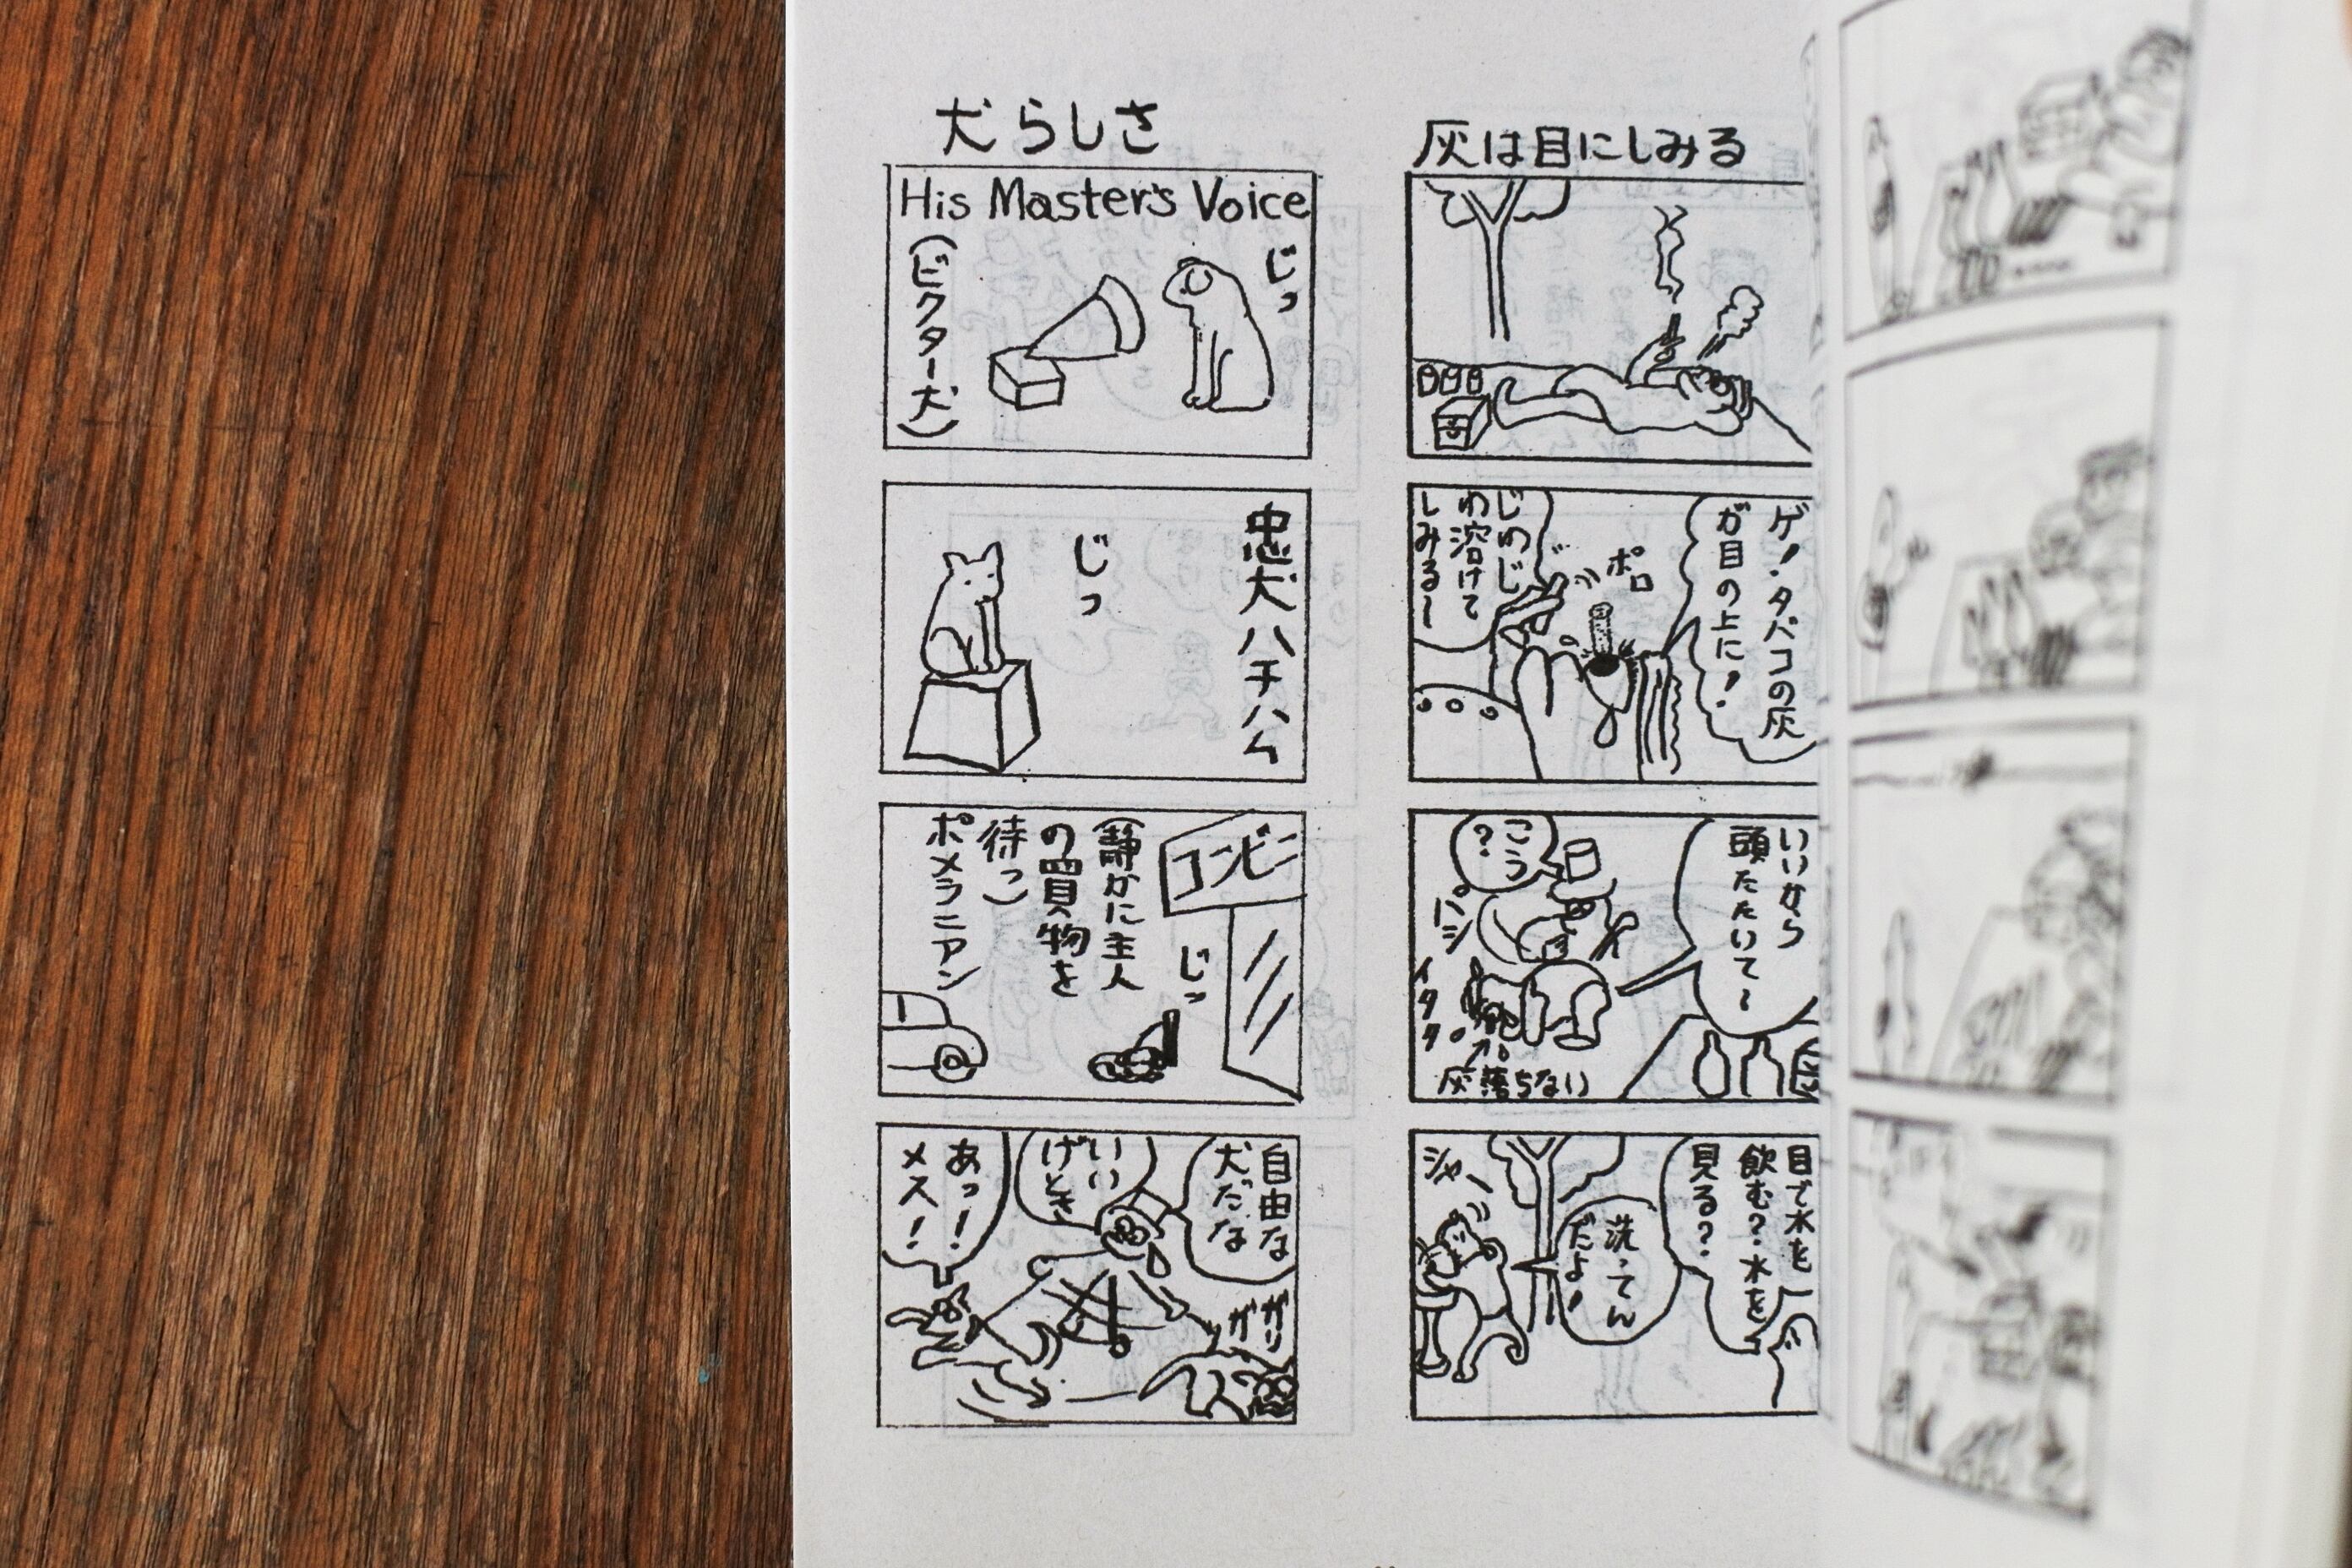 灰は目にしみる
ゲ!タバコの灰
が目の上に!
ポロ
じわじ
わ溶けて
しみる〜
いいから
頭たたいて〜
こう
?
イタタ
灰落ちない
目で水を
飲む?水を
見る?
洗ってん
だよ!
ジャー
犬らしさ
His Master's Voice
じっ
(ビクター犬)
忠犬ハチハム
じっ
コンビニ
じっ
(静かに主人
の買物を
待つ)
ポメラニアン
自由な
犬だな
いい
けどさ
あっ!
メス!
ガリ
ガリ